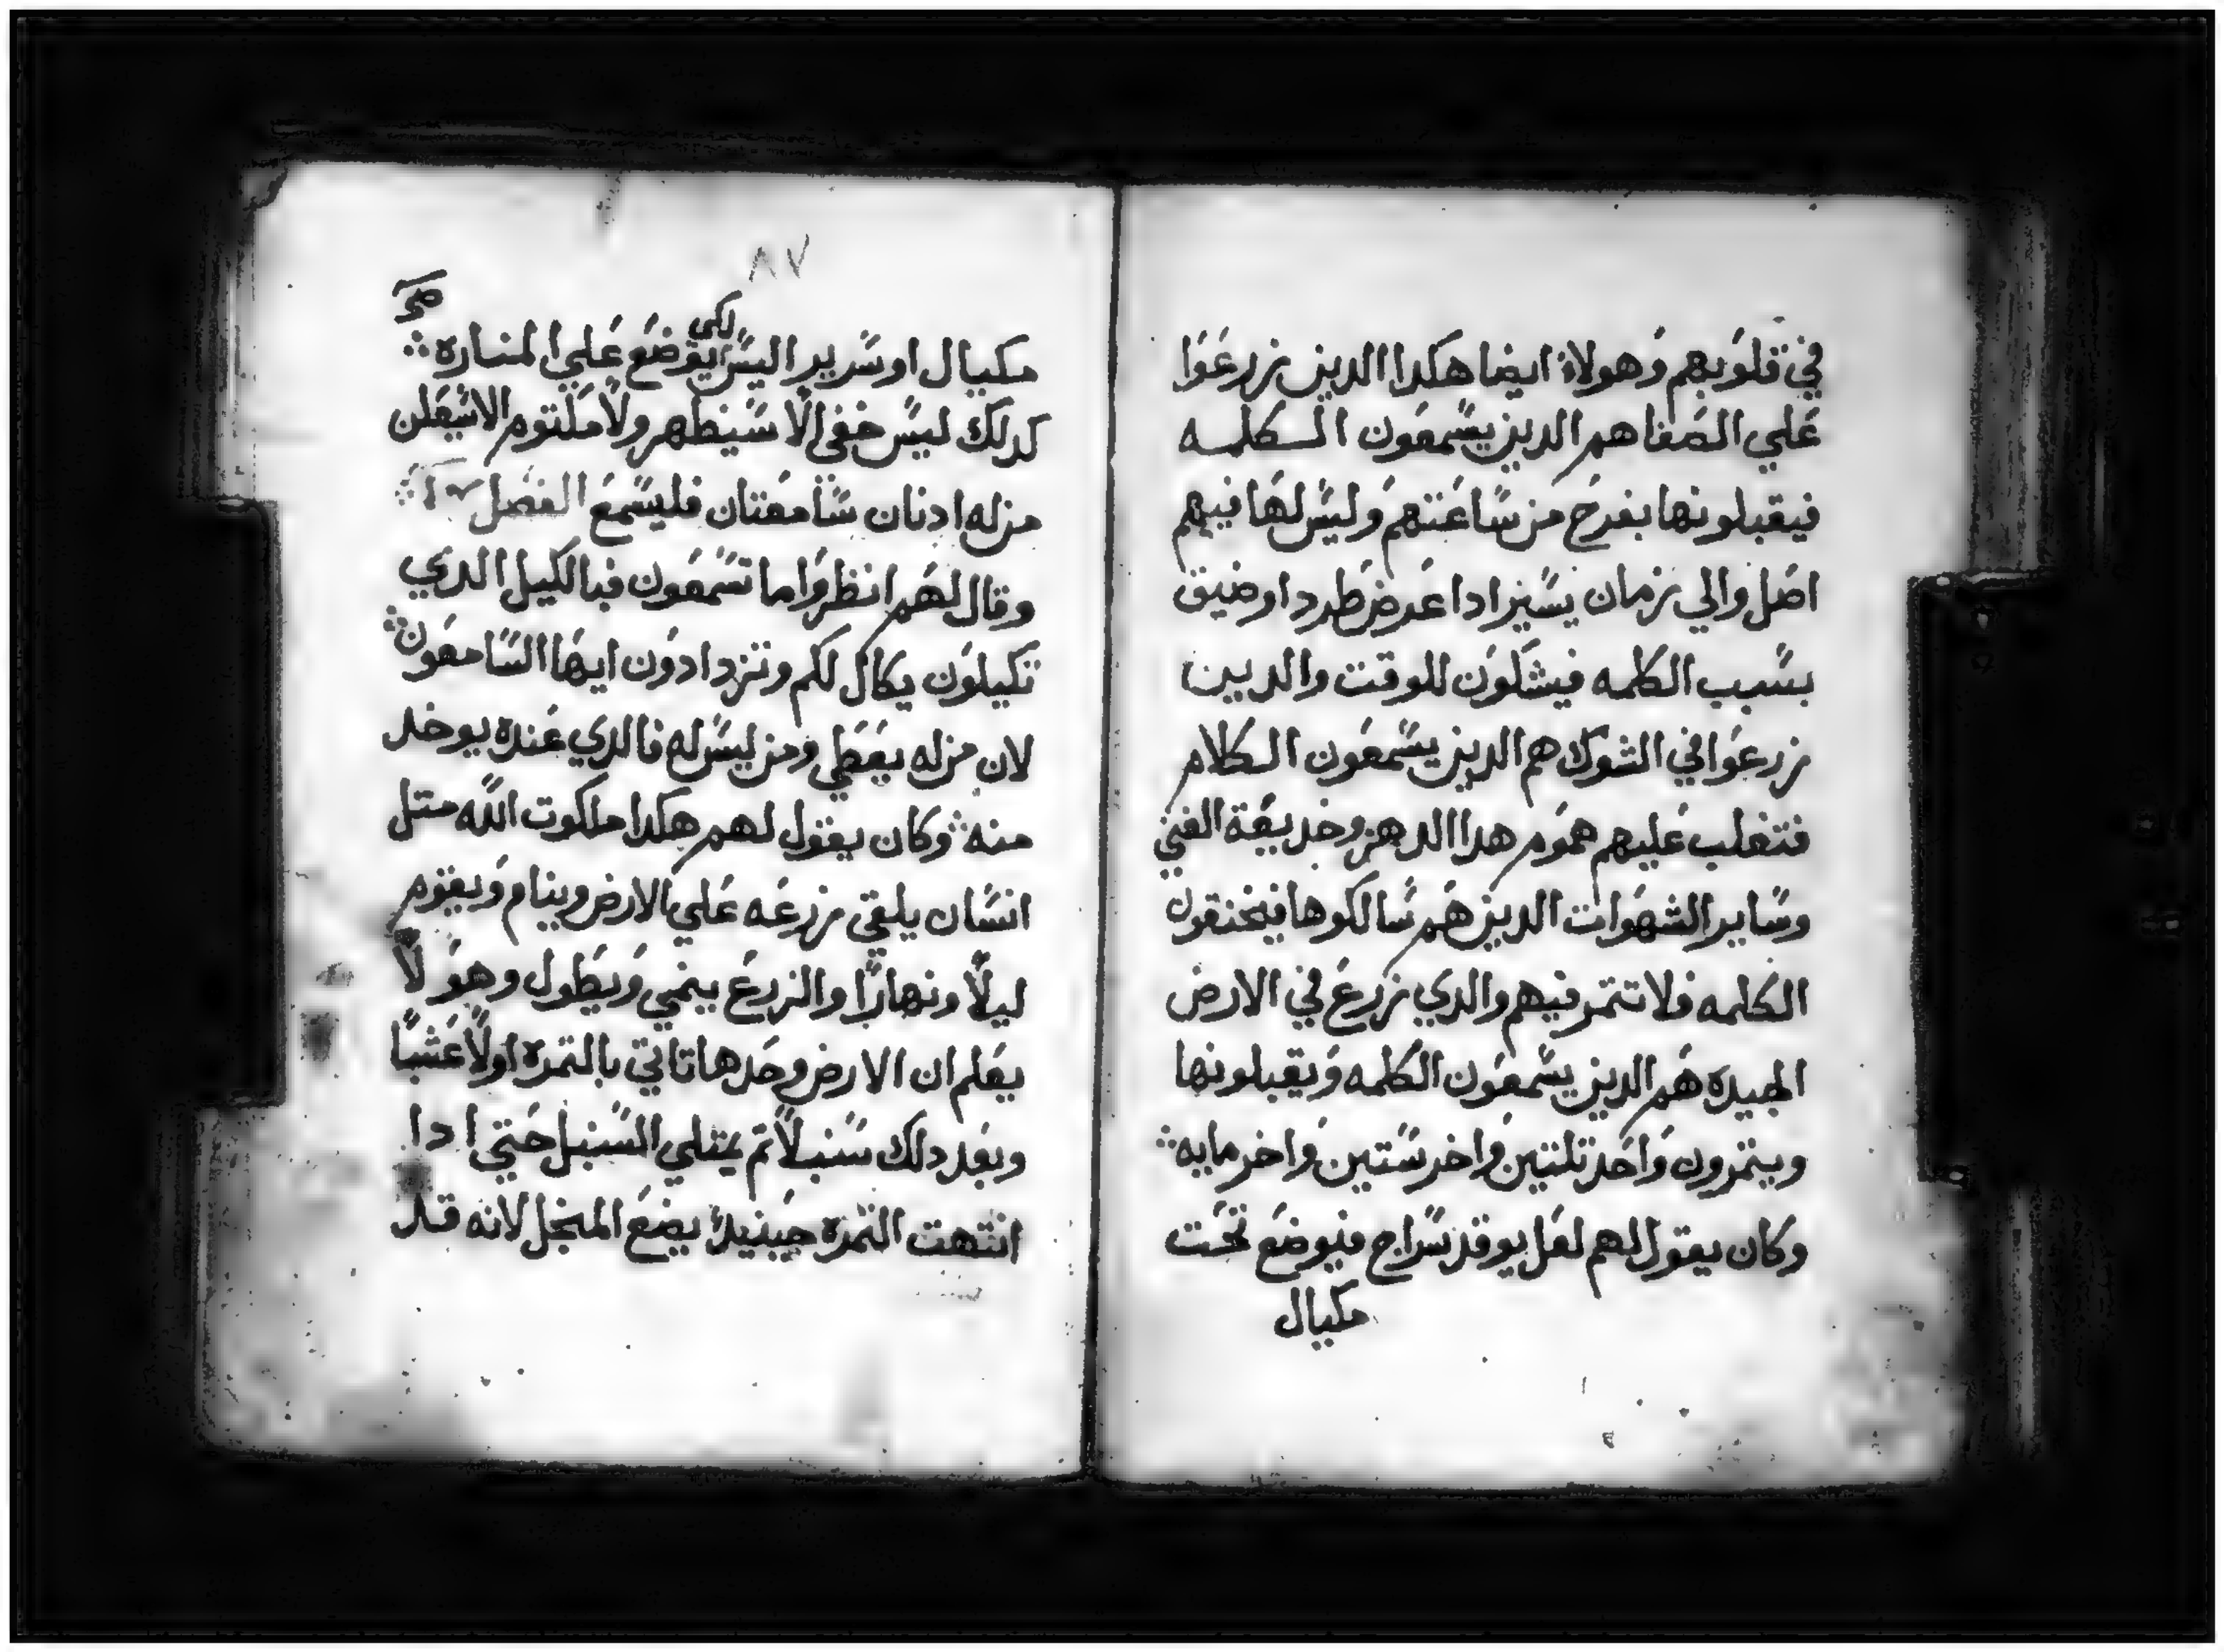 في قلوبهم وهولاء ايضا هكدا الدين زرعوا
علي الصفا هم الدين يسمعون الكلمه
فيقبلونها بفرح من ساعتهم وليس لها فيهم
اصل والي زمان يسير ادا عرض طرد او ضيق
بسبب الكلمه فيشكون للوقت والدين
زرعوا في الشوك هم الدين يسمعون الكلام
فتغلب عليهم هموم هدا الدهر وخديعة الغني
وساير الشهوات الدين هم سالكوها فيختنقون
الكلمه فلا تتمر فيهم والدي زرع في الارض
الجيده هم الدين يسمعون الكلمه ويقبلونها
ويتمرون واحد تلتين واخر ستين واخر مايه
وكان يقول لهم لعل يوقد سراج فيوضع تحت
مكيال
٨٧
مكيال او سرير اليس لكي يوضع علي المناره
كدلك ليس خفي الا سيظهر ولا مكتوم الا سيعلن
من له ادنان سامعتان فليسمع الفصل
وقال لهم انظروا ما تسمعون فبالكيل الدي
تكيلون يكال لكم وتزدادون ايها السامعون
لان من له يعطي ومن ليس له فالدي عنده يوخد
منه وكان يقول لهم هكدا ملكوت الله متل
انسان يلقي زرعه علي الارض وينام ويقوم
ليلا ونهارا والزرع ينمي ويطول وهو لا
يعلم ان الارض وحدها تاتي بالتمره اولا عشبا
وبعد دلك سنبلا تم يمتلي السنبل حتي ادا
انتهت التمره حينيد يضع المنجل لانه قد